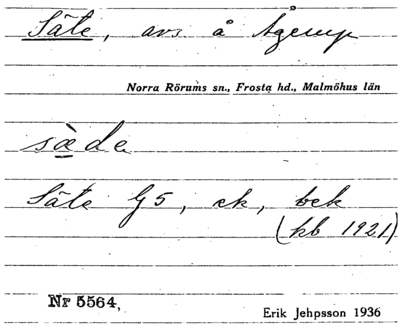 Säte, avs. å Ågerup
Norra Rörums sn., Frosta hd., Malmöhus län
sæde
Säte G5, ek, bek
(kb 1921)
Nr 5564,
Erik Jehpsson 1936